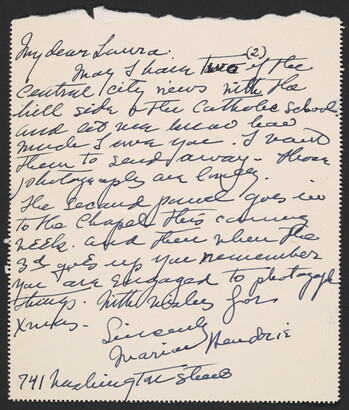 My dear Laura.
May I have two (2) of the
Central City news with the
hill side & the Catholic School
and let me know how
much I owe you. I want
them to send away - those
photographs are lovely.
The second panel goes in
to the Chapel this coming
week. and then when the
3rd goes up you remember
you are engaged to photograph
things. With wishes for
Xmas -
Sincerely
Marion Hendrie
741 Washington Street